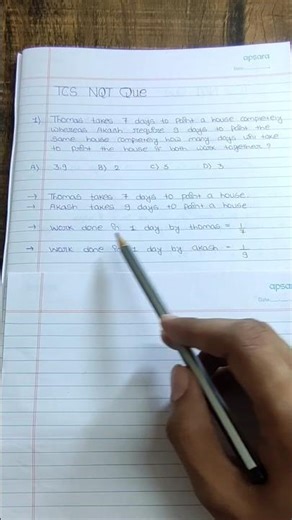 apsara
Date:
TCS NQT Que
1) Thomas takes 7 days to paint a house completely
whereas Akash require 9 days to paint the
same house completely how many days will take
to paint the house if both work together?
A) 3.9 B) 2 C) 5 D) 3
→ Thomas takes 7 days to paint a house.
→ Akash takes 9 days to paint a house
→ Work done in 1 day by thomas = 1/7
→ Work done in 1 day by akash = 1/9
apsa
Date: